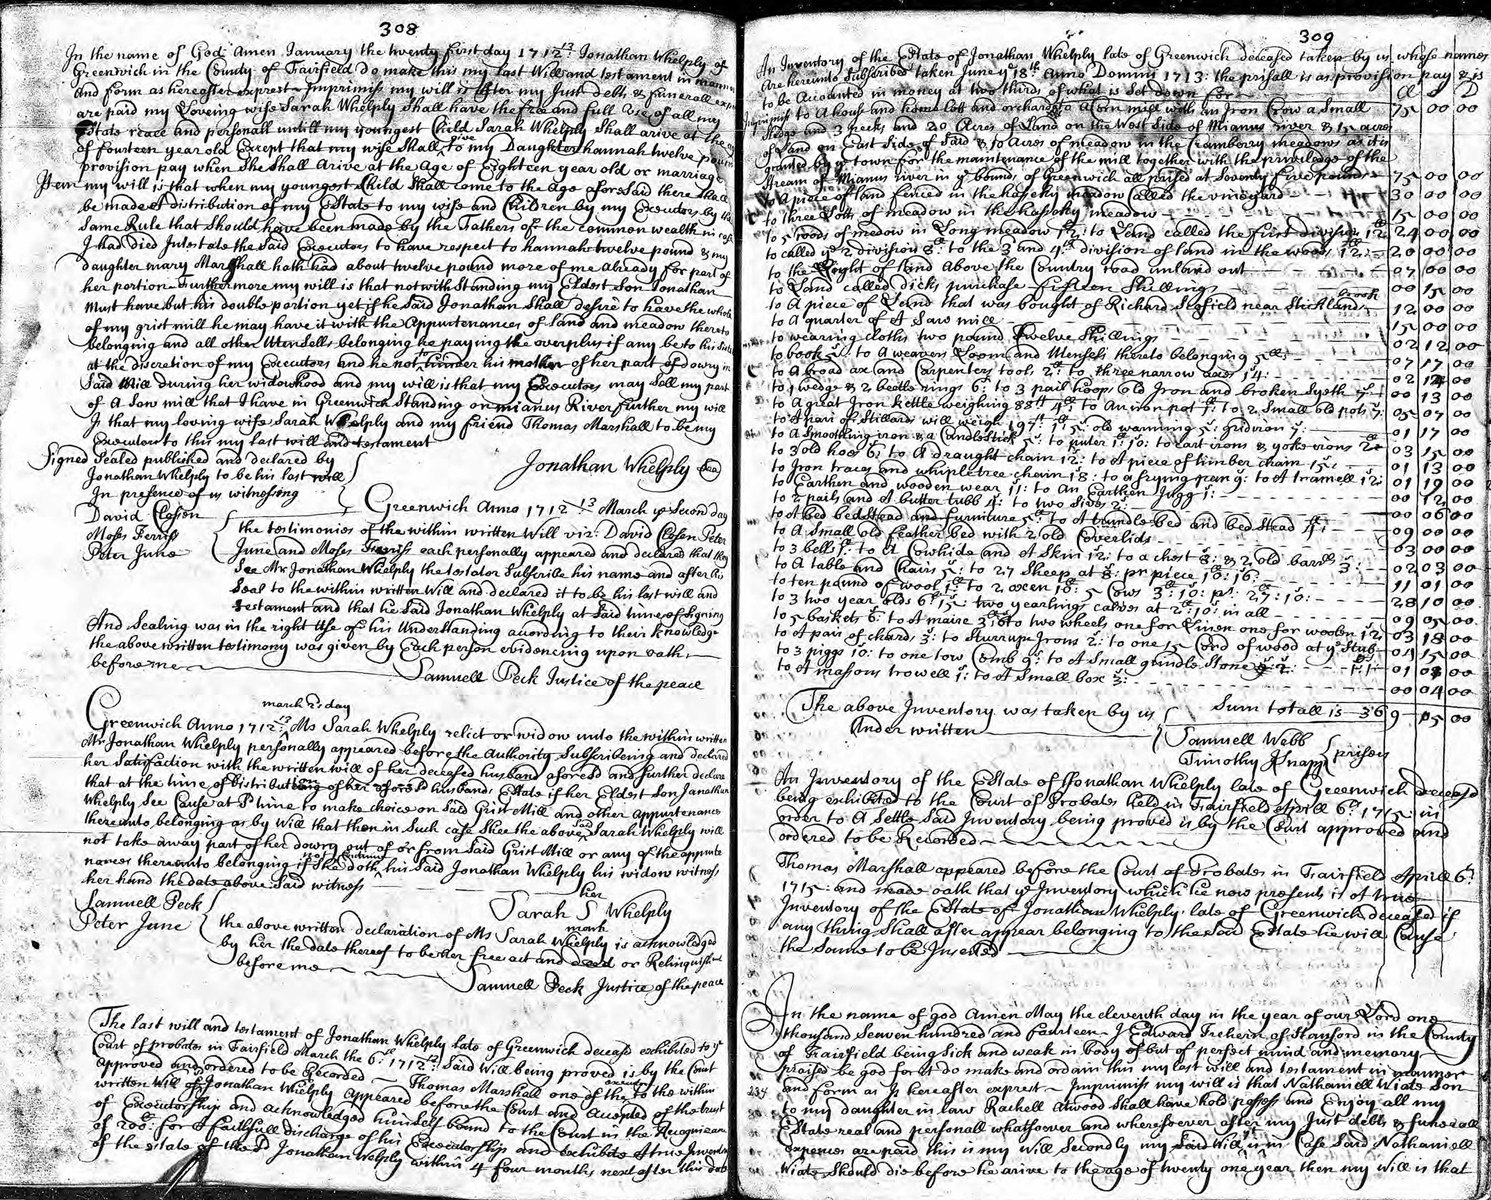 308
In the name of God Amen January the twenty first day 1712 13 Jonathan Whelply of
Greenwich in the County of Fairfield do make this my Last Will and testament in manner
And form as hereafter exprest Imprimis my will is After my Just debts & funerall
are paid my Loveing wife Sarah Whelply Shall have the free and full Use of all my
Estate reale and personall untill my youngest Child Sarah Whelply Shall arive at the
of fourteen year old Except that my wife Shall give to my Daughter hannah twelve pounds
provision pay when She Shall Arive at the Age of Eighteen year old or marriage
Item my will is that when my youngest Child Shall come to the Age aforesaid there Shall
be made A distribution of my Estate to my wife and Children by my Executors by the
Same Rule that Should have been made by the Fathers of the common wealth in case
I had died Intestate the said Executors to have respect to hannahs twelve pound & my
daughter mary Marshall hath had about twelve pound more of me Already for part of
her portion Furthermore my will is that notwith Standing my Eldest Son Jonathan
must have but his double portion yet if he Said Jonathan Shall desire to have the whole
of my grist mill he may have it with the Appurtenances of Land and meadow thereto
belonging and all other Utensells belonging he paying the overplus if any be to his
at the discretion of my Executors and he not to hinder his mother of her part of dowry in
Said Mill during her widowhood and my will is that my Executors may Sell my part
of A Saw mill that I have in Greenwich Standing on mianus River further my will
Is that my loving wife Sarah Whelply and my friend Thomas Marshall to be my
Executors to this my last will and testament
Signed Sealed published and declared by
Jonathan Whelply to be his last will
In presence of us witnessing
Jonathan Whelply
David Clason
Moses Ferris
Peter June
Greenwich Anno 1712 13 March ye Second day
the testimonies of the within written Will viz: David Clason Peter
June and Moses Ferris each personally appeared and declared that they
See Mr Jonathan Whelply the testator Subscribe his name and affix his
Seal to the within written Will and declared it to be his last will and
testament and that he Said Jonathan Whelply at Said time of signing
And Sealing was in the right Use of his Understanding according to their knowledge
the above written testimony was given by Each person evidencing upon oath
before me
Samuell Peck Justice of the peace
march 2d day
Greenwich Anno 1712 13 Ms Sarah Whelply relict or widow unto the within written
Mr Jonathan Whelply personally appeared before the Authority Subscribeing and declared
her Satisfaction with the written will of her deceased husband aforesd and further declare
that at the time of distribution of her husbands Estate if her Eldest Son Jonathan
Whelply See Cause at time to make choice on Said Grist Mill and other Appurtenances
thereunto belonging as by Will that then in Such case Shee the above said Sarah Whelply will
not take away part of her dowry out of or from Said Grist Mill or any of the appurte
nances thereunto belonging if She doth his Said Jonathan Whelply his widow witness
her hand the date above Said witness
Samuell Peck
Peter June
her
Sarah S Whelply
mark
the above written declaration of Ms Sarah Whelply is acknowledged
by her the date thereof to be her free act and deed or Relinquish
before me
Samuell Peck Justice of the peace
The last will and testament of Jonathan Whelply late of Greenwich deceased exhibited to ye
Court of probates in Fairfield March the 6th 1712 13 Said Will being proved is by the Court
approved and ordered to be Recorded Thomas Marshall one of the executors to the within
written Will of Jonathan Whelply Appeared before the Court and Accepted of the trust
of Executorship and acknowledged himself bound to the Court in the
of for A faithfull discharge of his Executorship and exhibite A true Inventory
of the estate of the Jonathan Whelply within 4 four months next after this date
309
An Inventory of the Estate of Jonathan Whelply late of Greenwich deceased taken by us whose names
Are hereunto Subscribed taken June ye 18th Anno Domini 1713: the prisall is as provision pay & is
to be Accounted in money at two thirds of what is Set down for
Imprimis to A house and home lott and orchard to A Corn mill with an Iron Crow a Small 75 00 00
Sledge and 3 pecks and 20 Acres of Land on the West Side of Mianus river & 15 acres
of Land on East Side of Said & 10 Acres of meadow in the Cramberry meadows as it is
granted by ye town for the maintenance of the mill together with the priviledge of the
Stream of Mianus river in ye bounds of Greenwich all prised at Seventy five pounds 75 00 00
to A piece of land fenced in the hassoky meadow Called the vineyard 30 00 00
to three Lotts of meadow in the hassoky meadow 15 00 00
to 5 roods of medow in Long meadow 12: to Land called the first division 12 24 00 00
to called ye 2 division 8: to the 3 and 4th division of land in the woods 12: 20 00 00
to the Right of land Above the Country road unlaid out 07 00 00
to Land called dicks purchase fifteen Shillings 00 15 00
to A piece of Land that was bought of Richard Scofield near Stickland brook 12 00 00
to A quarter of A Saw mill 15 00 00
to wearing cloths two pound twelve Shillings 02 12 00
to books to A weavers Loom and Utensels thereto belonging 07 17 00
to A broad ax and Carpenters tools 2: to three narrow axes 14: 02 14 00
to 1 wedge & 2 beetle rings 6: to 3 pail hoops old Iron and broken Syeth 7: 00 13 00
to A great Iron kettle weighing 88 4: to An Iron pot 1: to 2 Small old pots 7: 05 07 00
to A pair of Stillards will weigh 197: 15: old warming 5: Gridiron 7: 01 17 00
to A Smoothing iron & a Candlestick 5: to puter 1: 10: to cart irons & yoke irons 03 15 00
to 3 old hoes 6: to A draught chain 12: to A piece of timber chain 15: 01 13 00
to Iron traces and whipletree chain 18: to a frying pan 9: to A tramell 12: 01 19 00
to Earthen and wooden wear 11: to An Earthen Jugg 1: 00 12 00
to 2 pails and A butter tubb 4: to two Sives 2: 00 06 00
to A bed bedstead and furniture 5: to A trundle bed and bed stead 4: 09 00 00
to A Small old feather bed with 2 old Coverlids 03 00 00
to 3 bells: to A Cowhide and A Skin 12: to a chest 8: & 2 old barrls 3: 02 03 00
to A table and Chairs 5: to 27 Sheep at 8: pr piece 10: 16: 11 01 00
to ten pound of wool 1: to 2 oxen 10: 5 Cows 3: 10: ps: 27: 10: 28 10 00
to 3 two year olds 6: 15: two yearling calves at 2: 10: in all 09 05 00
to 5 baskets 6: to A maire 3: to two wheels one for Linen one for woolen 12 03 18 00
to A pair of chards 3: to Sturrup Irons 2: to one 15 Cord of wood at ye Stub 04 15 00
to 3 piggs 10: to one tow Comb 9: to A Small grindle Stone 2: 01 00
to A massons trowell 1: to A Small box 3: 00 04 00
The above Inventory was taken by us
Under written
Sum totall is 369 05 00
Samuell Webb
Timothy Knapp
prisers
An Inventory of the Estate of Jonathan Whelply late of Greenwich deceased
being exhibited to the Court of Probates held in Fairfield Aprill 6th 1715 in
order to A Settle Said Inventory being proved is by the Court approved and
ordered to be Recorded
Thomas Marshall appeared before the Court of Probates in Fairfield Aprill 6th
1715: and made oath that ye Inventory which he now presents is A true
Inventory of the Estate of Jonathan Whelply late of Greenwich deceased if
any thing Shall after appear belonging to the Said Estate he will Cause
the Same to be Inserted
In the name of god Amen May the eleventh day in the year of our Lord one
thousand Seaven hundred and fourteen I Edward Trehern of Stanford in the County
of Fairfield being Sick and weak in body of but of perfect mind and memory
praised be god for it do make and ordain this my last will and testament in manner
and form as is hereafter exprest Imprimis my will is that Nathaniell Wiate Son
to my daughter in law Rachell Atwood Shall have hold posess and Enjoy all my
Estate real and personall whatsoever and wheresoever after my Just debts & funerall
expences are paid this is my will Secondly my Said Will is in Case Said Nathaniell
Wiate Should die before he arive to the age of twenty one year then my Will is that